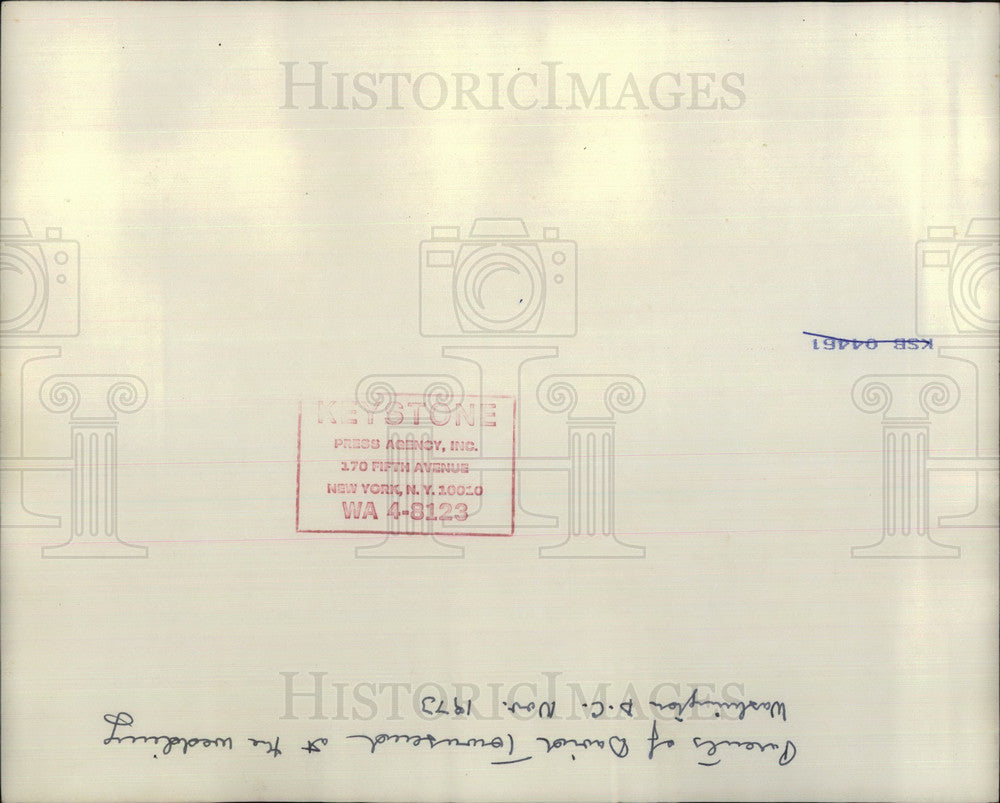 HISTORICIMAGES
KSB 04461
KEYSTONE
PRESS AGENCY, INC.
170 FIFTH AVENUE
NEW YORK, N. Y. 10010
WA 4-8123
HISTORICIMAGES
Parents of David Townsend at the wedding
Washington D.C. Nov. 1973